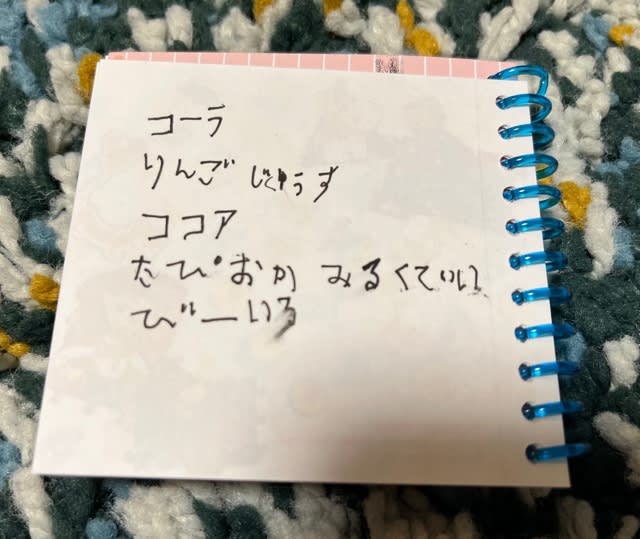 コーラ
りんご じゅうす
ココア
たぴおか みるくてぃい
びーいる